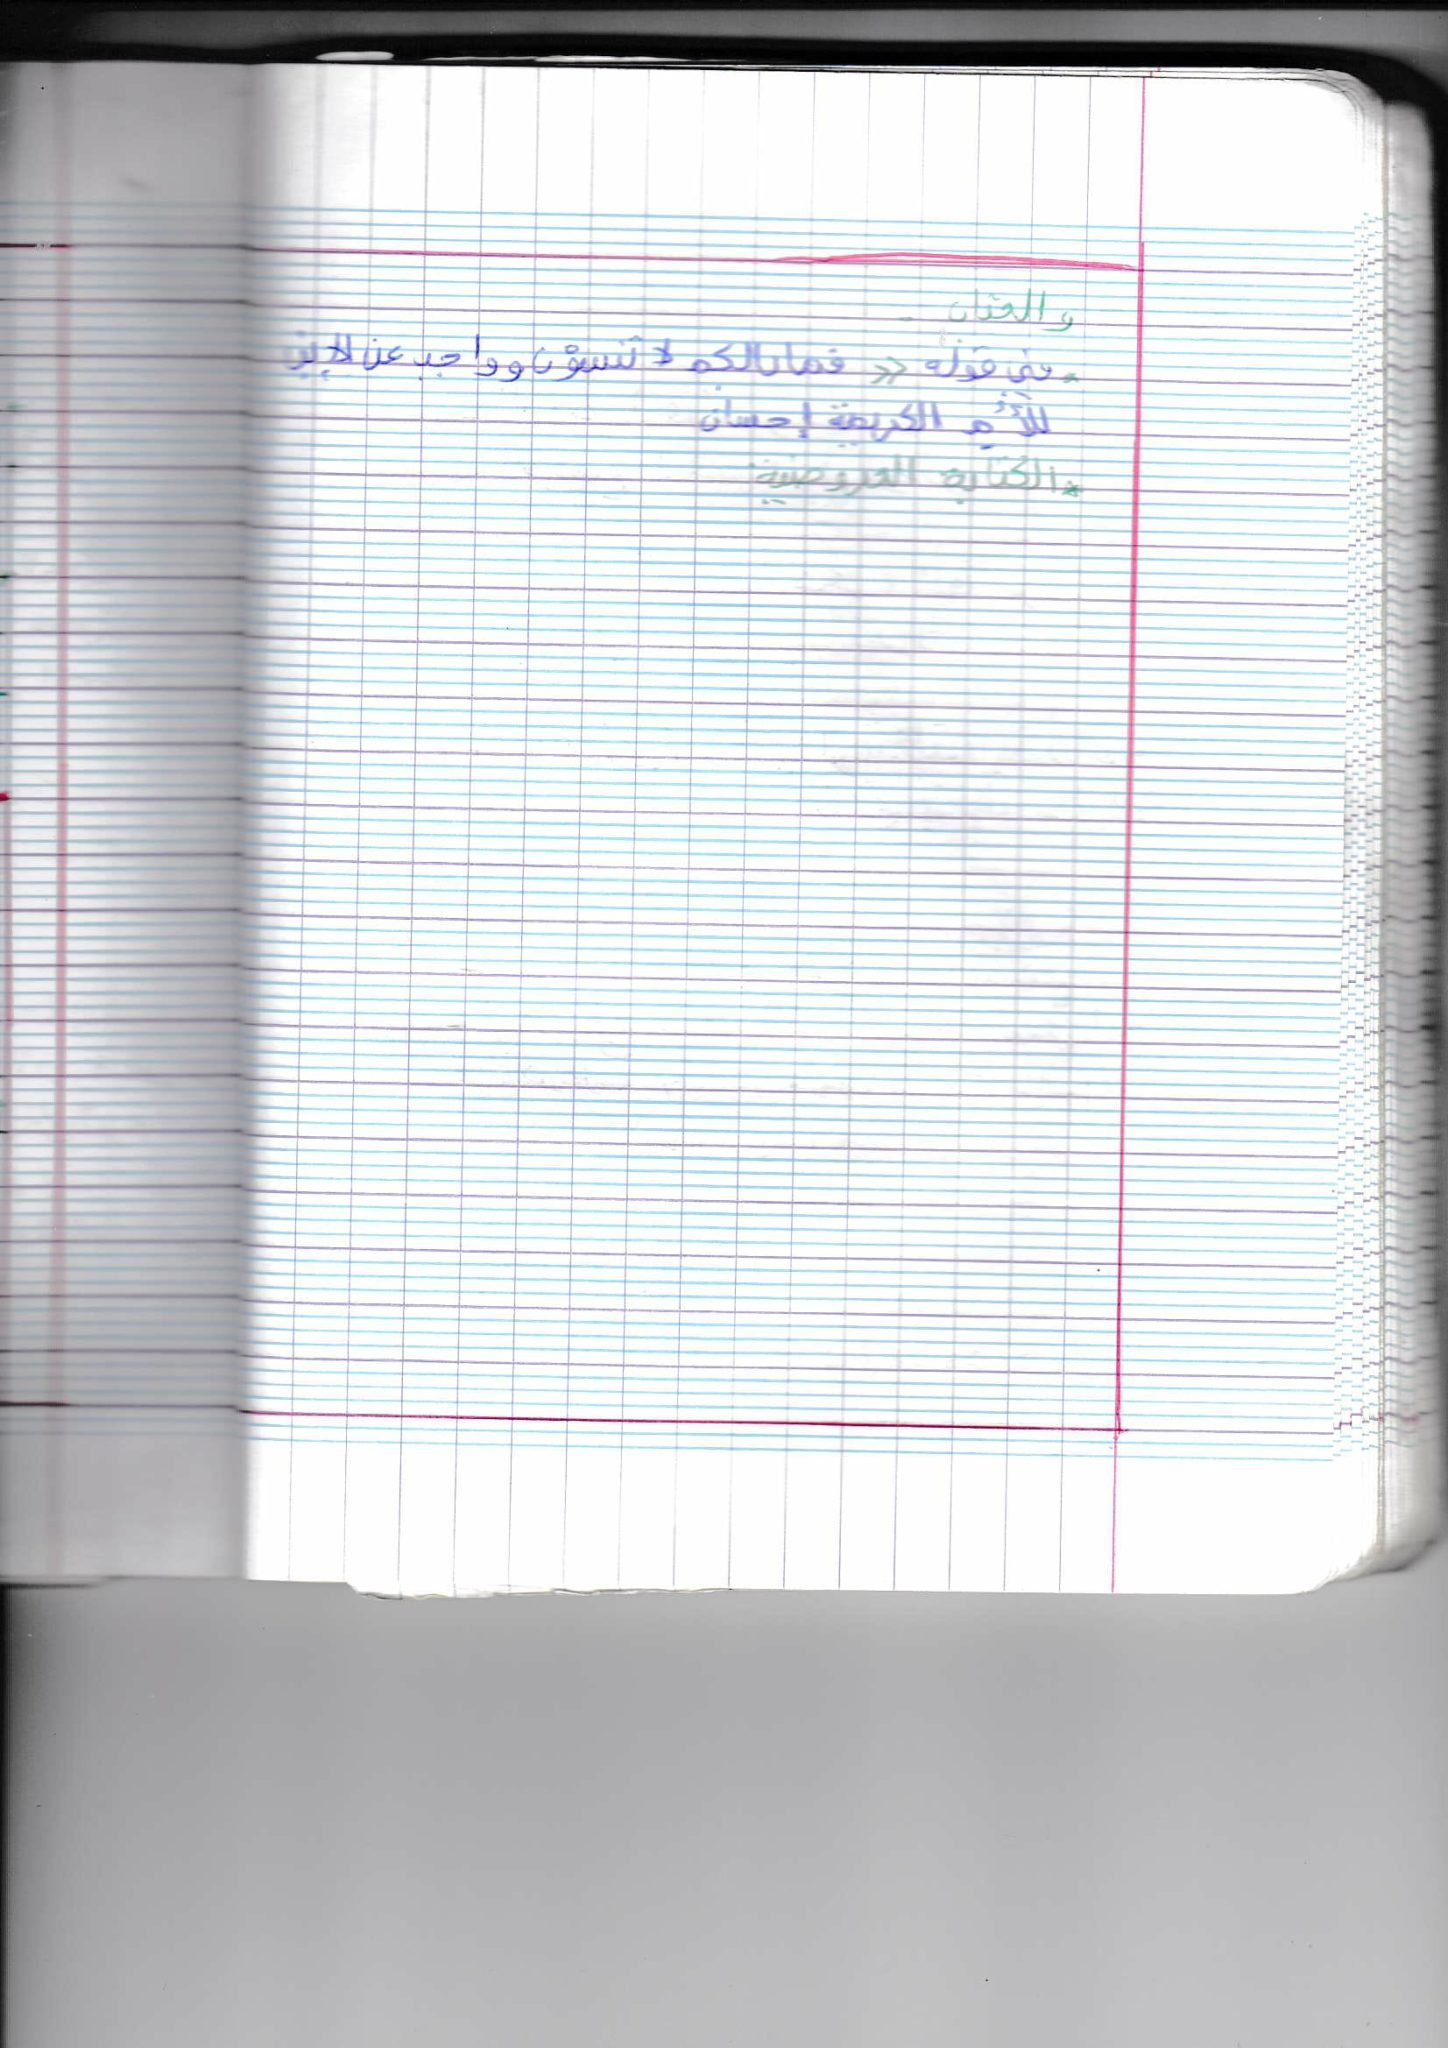 والحنان.
* في قوله << فما بالكم لا تنسون وواجب عن الابن
للأم الكريمة إحسان
* الكتابة العروضية: